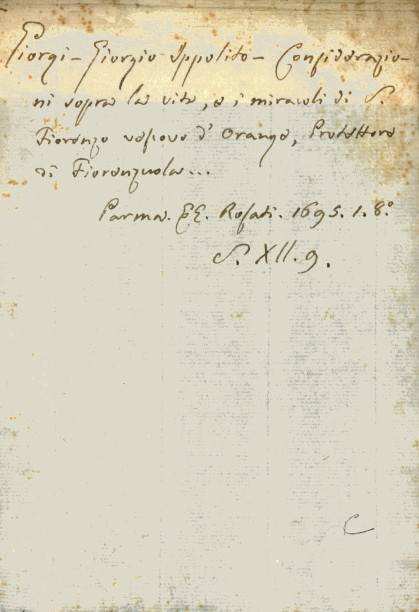 Giorgi - Giorgio Ippolito - Considerazio-
ni sopra la vita, e i miracoli di S.
Fiorenzo vescovo d'Orange, Protettore
di Fiorenzuola...
Parma. EE. Rosati. 1695. 1. 8.º
S. XII. 9.
C